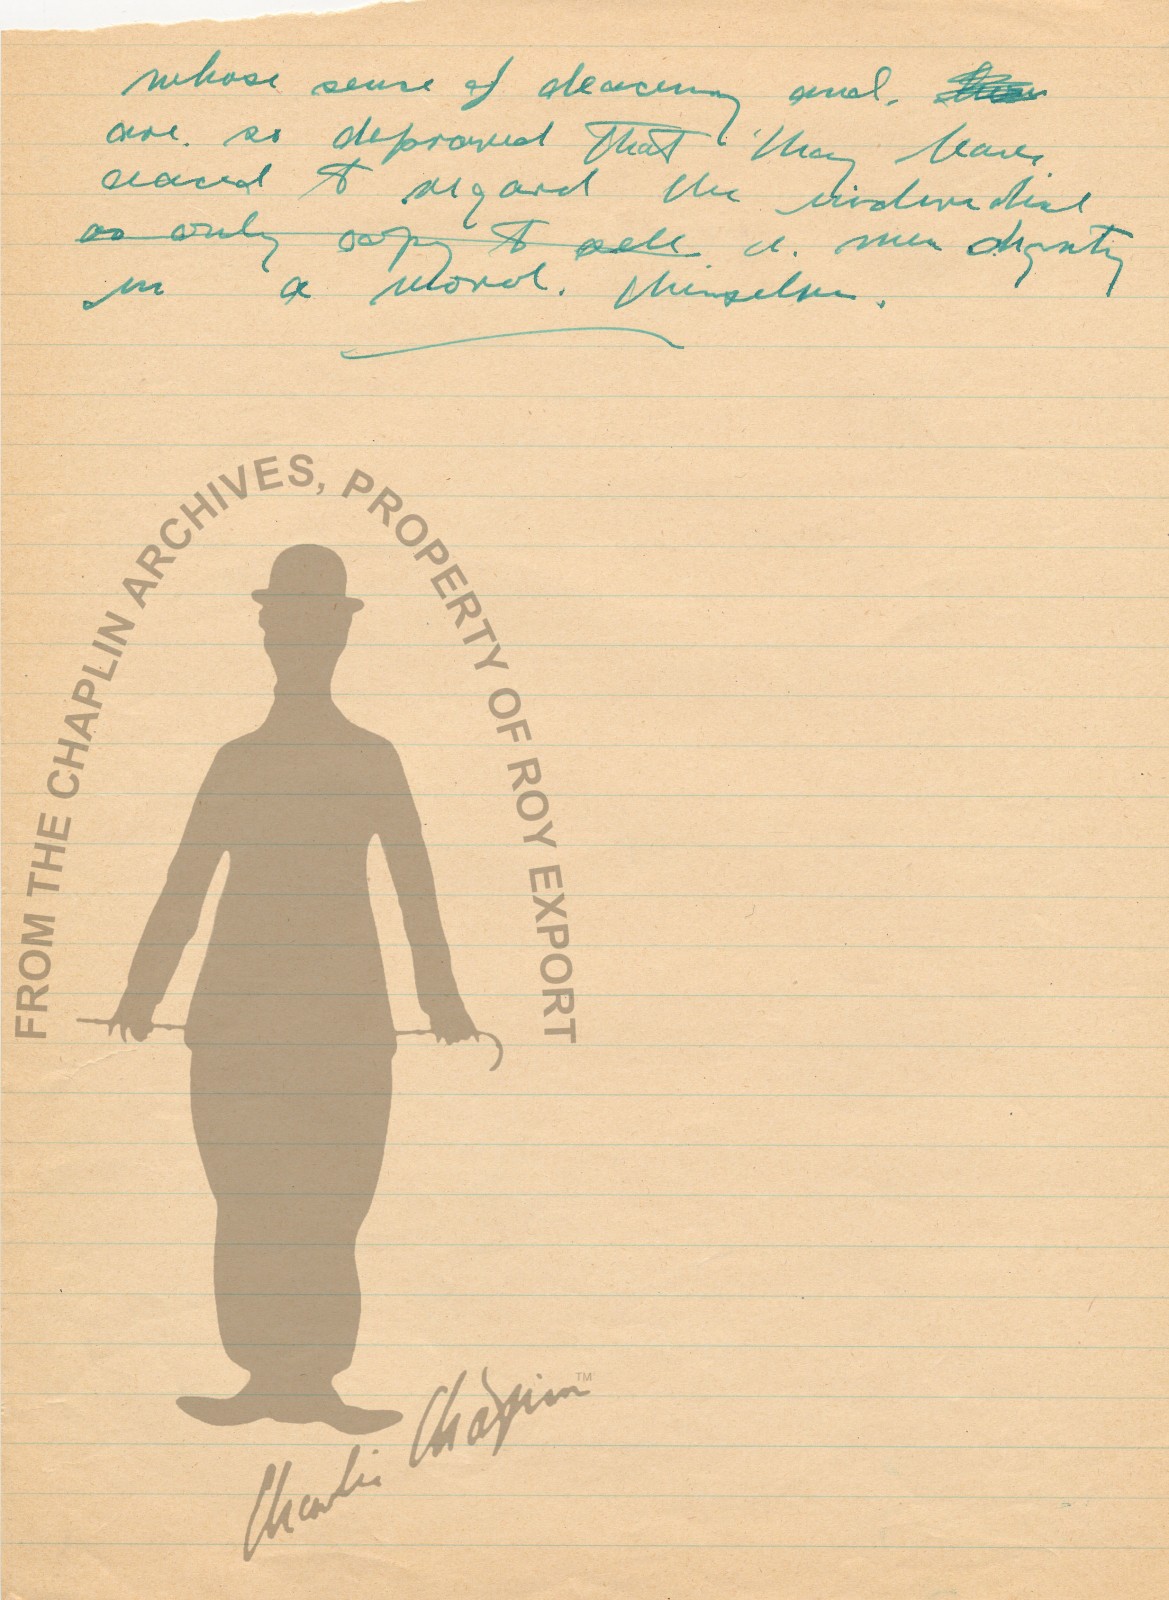 whose sense of deacency and.
are. so depraved that they have
seaced to regard the individual
as only copy to sell a. man dignity
in a word. themselves.
FROM THE CHAPLIN ARCHIVES, PROPERTY OF ROY EXPORT
Charlie Chaplin TM